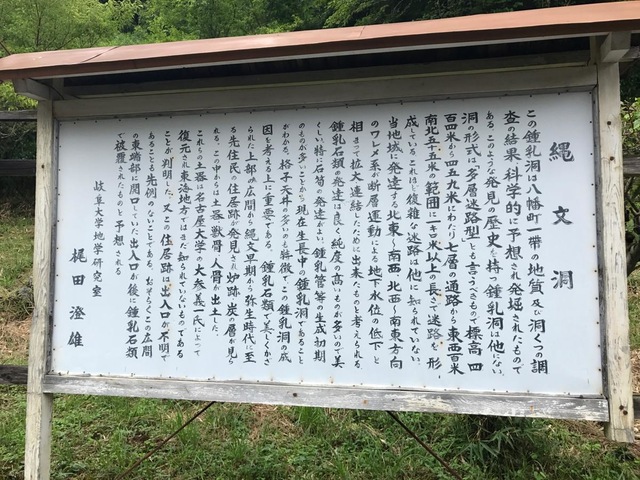 縄文洞
この鍾乳洞は八幡町一帯の地質及び洞くつの調
査の結果科学的に予想され発掘されたもので
ある。このような発見の歴史を持つ鍾乳洞は他にない。
洞の形式は多層迷路型とも言うべきもので標高四
百四米から四五九米にわたり七層の通路から東西百米
南北五五米の範囲に一キロ米以上の長さ迷路を形
成している。これほど複雑な迷路は他に知られていない。
当地域に発達する北東〜南西、北西〜南東方向
のワレメ系が断層運動による地下水位の低下と
相まって拡大連結したために出来たものと考えられる。
鍾乳石類の発達は良く純度の高いものが多いので美
くしい。特に石筍の発達がよい。鍾乳管等の生成初期
のものが多いことから現在生長中の鍾乳洞であること
がわかる。格子天井の多いのも特徴でこの鍾乳洞の成
因を考える上に重要である。鍾乳石類で美しくかざ
られた上部の広間から縄文早期から弥生時代に至
る先住民の住居跡が発見され炉跡、炭の層が見ら
れる。この中からは土器、獣骨、人骨が出土した。
これらの土器は名古屋大学の大参義一氏によって
復元され東海地方ではまだ知られていないものである
ことが判明した。又この住居跡は出入口が不明で
あることも先例のないことである。おそらくこの広間
の東端部に開口していた出入口が後に鍾乳石類
で被覆されたものと予想される
岐阜大学地学研究室
梶田澄雄